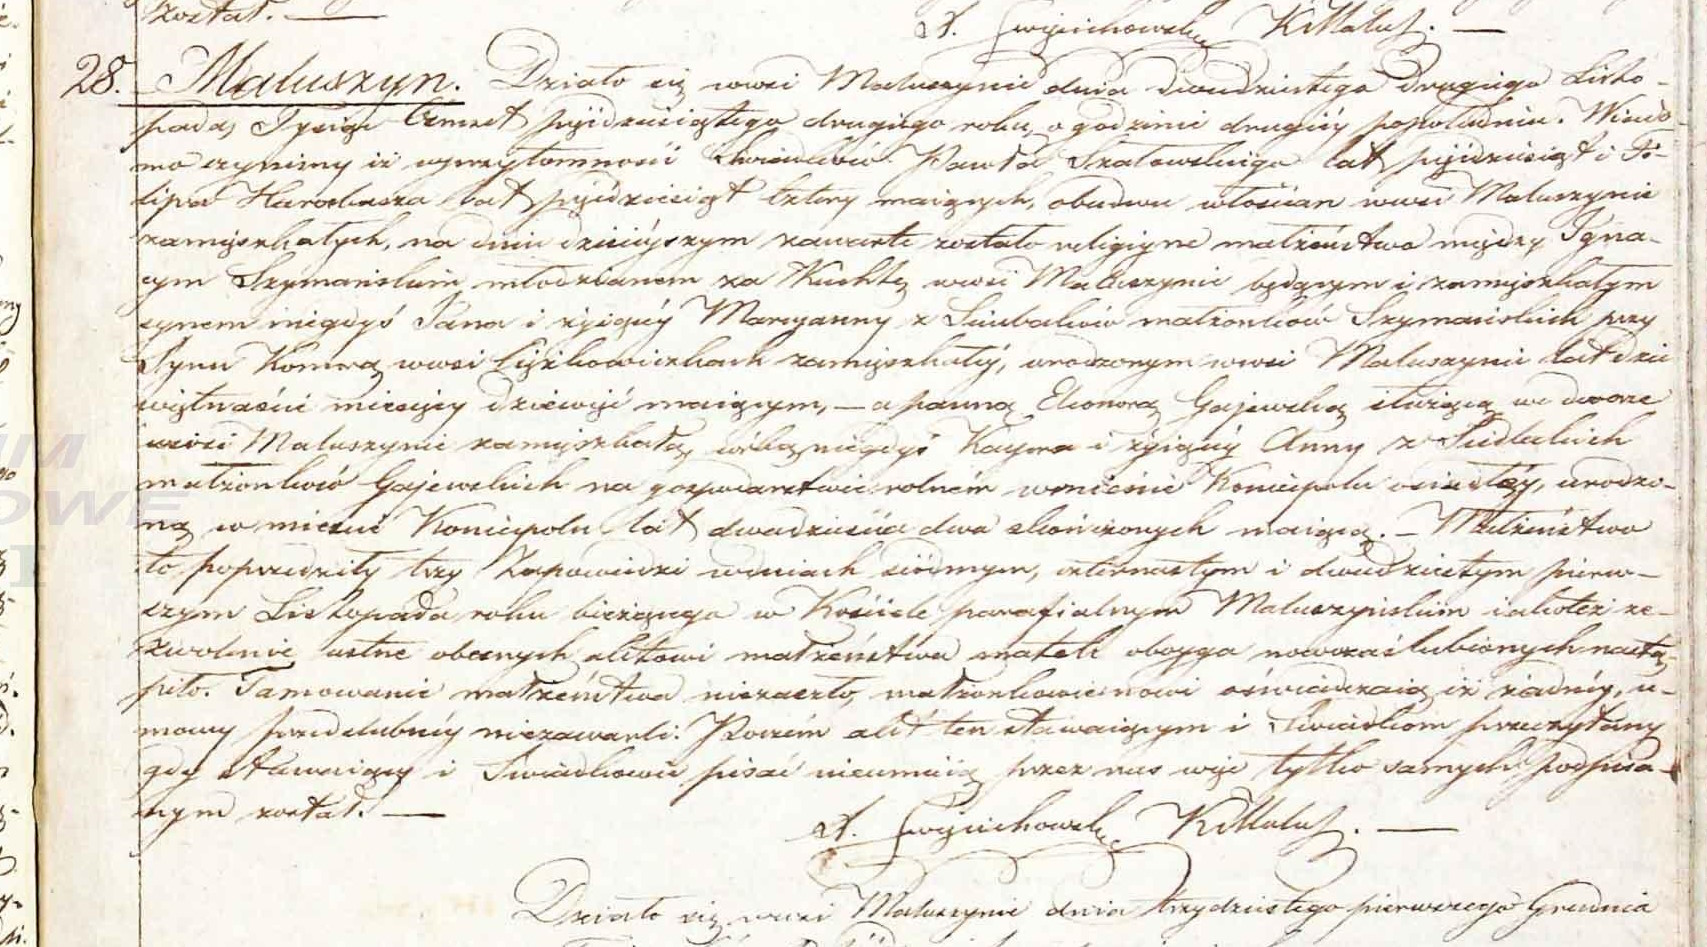 został. —
A. Cwojdzichowski K.Malusz. —
28. Maluszyn. Działo się wwsi Maluszynie dnia dwudziestego drugiego Listo-
pada, Tysiąc Ośmset pięjdziesiątego drugiego roku, o godzinie drugiéj popołudniu. Wiado-
mo czyniemy iż wprzytomności Świadków Pawła Szatowskiego lat pięjdziesiąt i Fi-
lipa Harabasza lat pięjdziesiąt cztery maiących, obudwu włościan wwsi Maluszynie
zamięszkałych, na dniu dzisiéjszym zawarte zostało religijne małżeństwo między Igna-
cym Szymańskim młodzianem za Kuchtę wwsi Maluszynie będącym i zamięszkałym
synem niegdyś Jana i żyiącéj Maryanny z małżonków Szymańskich przy
Synu Komorą wwsi zamięszkałéj, urodzonym wwsi Maluszynie lat dzie
więtnaście miesięcy dziewięć maiącym, — a panną Eleonorą Gajewską służącą we dworze
wwsi Maluszynie zamięszkałą, córką niegdyś i żyiącéj Anny z Siedleckich
małżonków Gajewskich na gospodarstwie rolném wmieście Koniecpolu osiadłéj, urodzo-
ną w mieście Koniecpolu lat dwadzieścia dwa skończonych maiącą. — Małżeństwo
to poprzedziły trzy Zapowiedzi wdniach siódmym, czternastym i dwudziestym pierw-
szym Listopada roku bieżącego w Kościele parafialnym Maluszyńskim iakoteż ze-
zwolenie ustne obecnych aktowi małżeństwa matek oboyga nowozaślubionych nastą-
piło. Tamowanie małżeństwa niezaszło, małżonkowie nowi oświadczaią iż żadnéj, u-
mowy przedślubnéj niezawarli. Poczém akt ten stawaiącym i Świadkom przeczytany
gdy stawaiący i Świadkowie pisać nieumieią przez nas więc tylko samych podpisa-
nym został. —
A. Cwojdzichowski K.Malusz. —
Działo się wwsi Maluszynie dnia trzydziestego pierwszego Grudnia